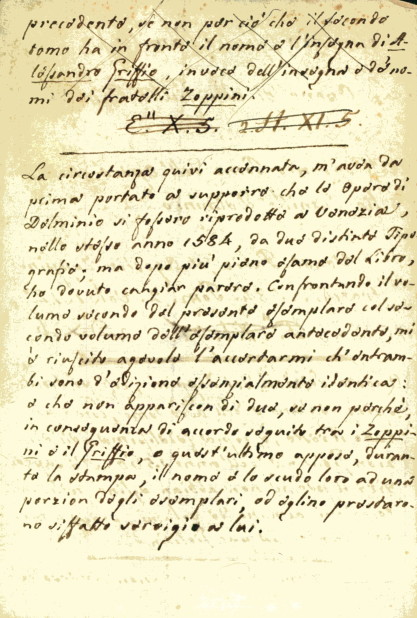 precedente, se non per ciò che il secondo
tomo ha in fronte il nome e l'insegna di A-
lessandro Griffio, invece dell'insegna e de' no-
mi dei fratelli Zoppini.
E." X. 5. 2 H. XI. 5.
La circostanza quivi accennata, m'avea da
prima portato a supporre che le Opere di
Delminio si fossero riprodotte a Venezia,
nello stesso anno 1584, da due distinte Tipo
grafie; ma dopo più pieno esame del Libro,
ho dovuto cangiar parere. Confrontando il vo-
lume secondo del presente esemplare col se-
condo volume dell'esemplare antecedente, mi
è riuscito agevole l'accertarmi ch'entram-
bi sono d'edizione essenzialmente identica:
e che non appariscon di due, se non perchè,
in conseguenza di accordo seguito tra i Zoppi-
ni e il Griffio, o quest'ultimo appose, duran-
te la stampa, il nome e lo scudo loro ad una
porzion degli esemplari, od eglino prestaro-
no siffatto servigio a lui.